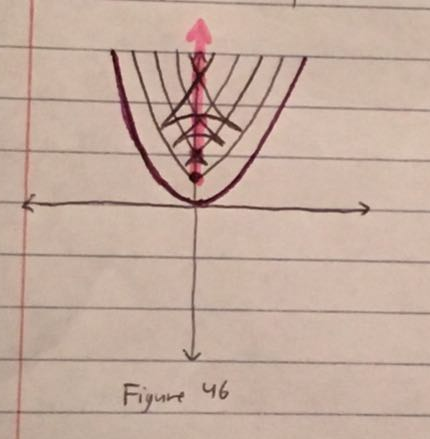 Figure 46